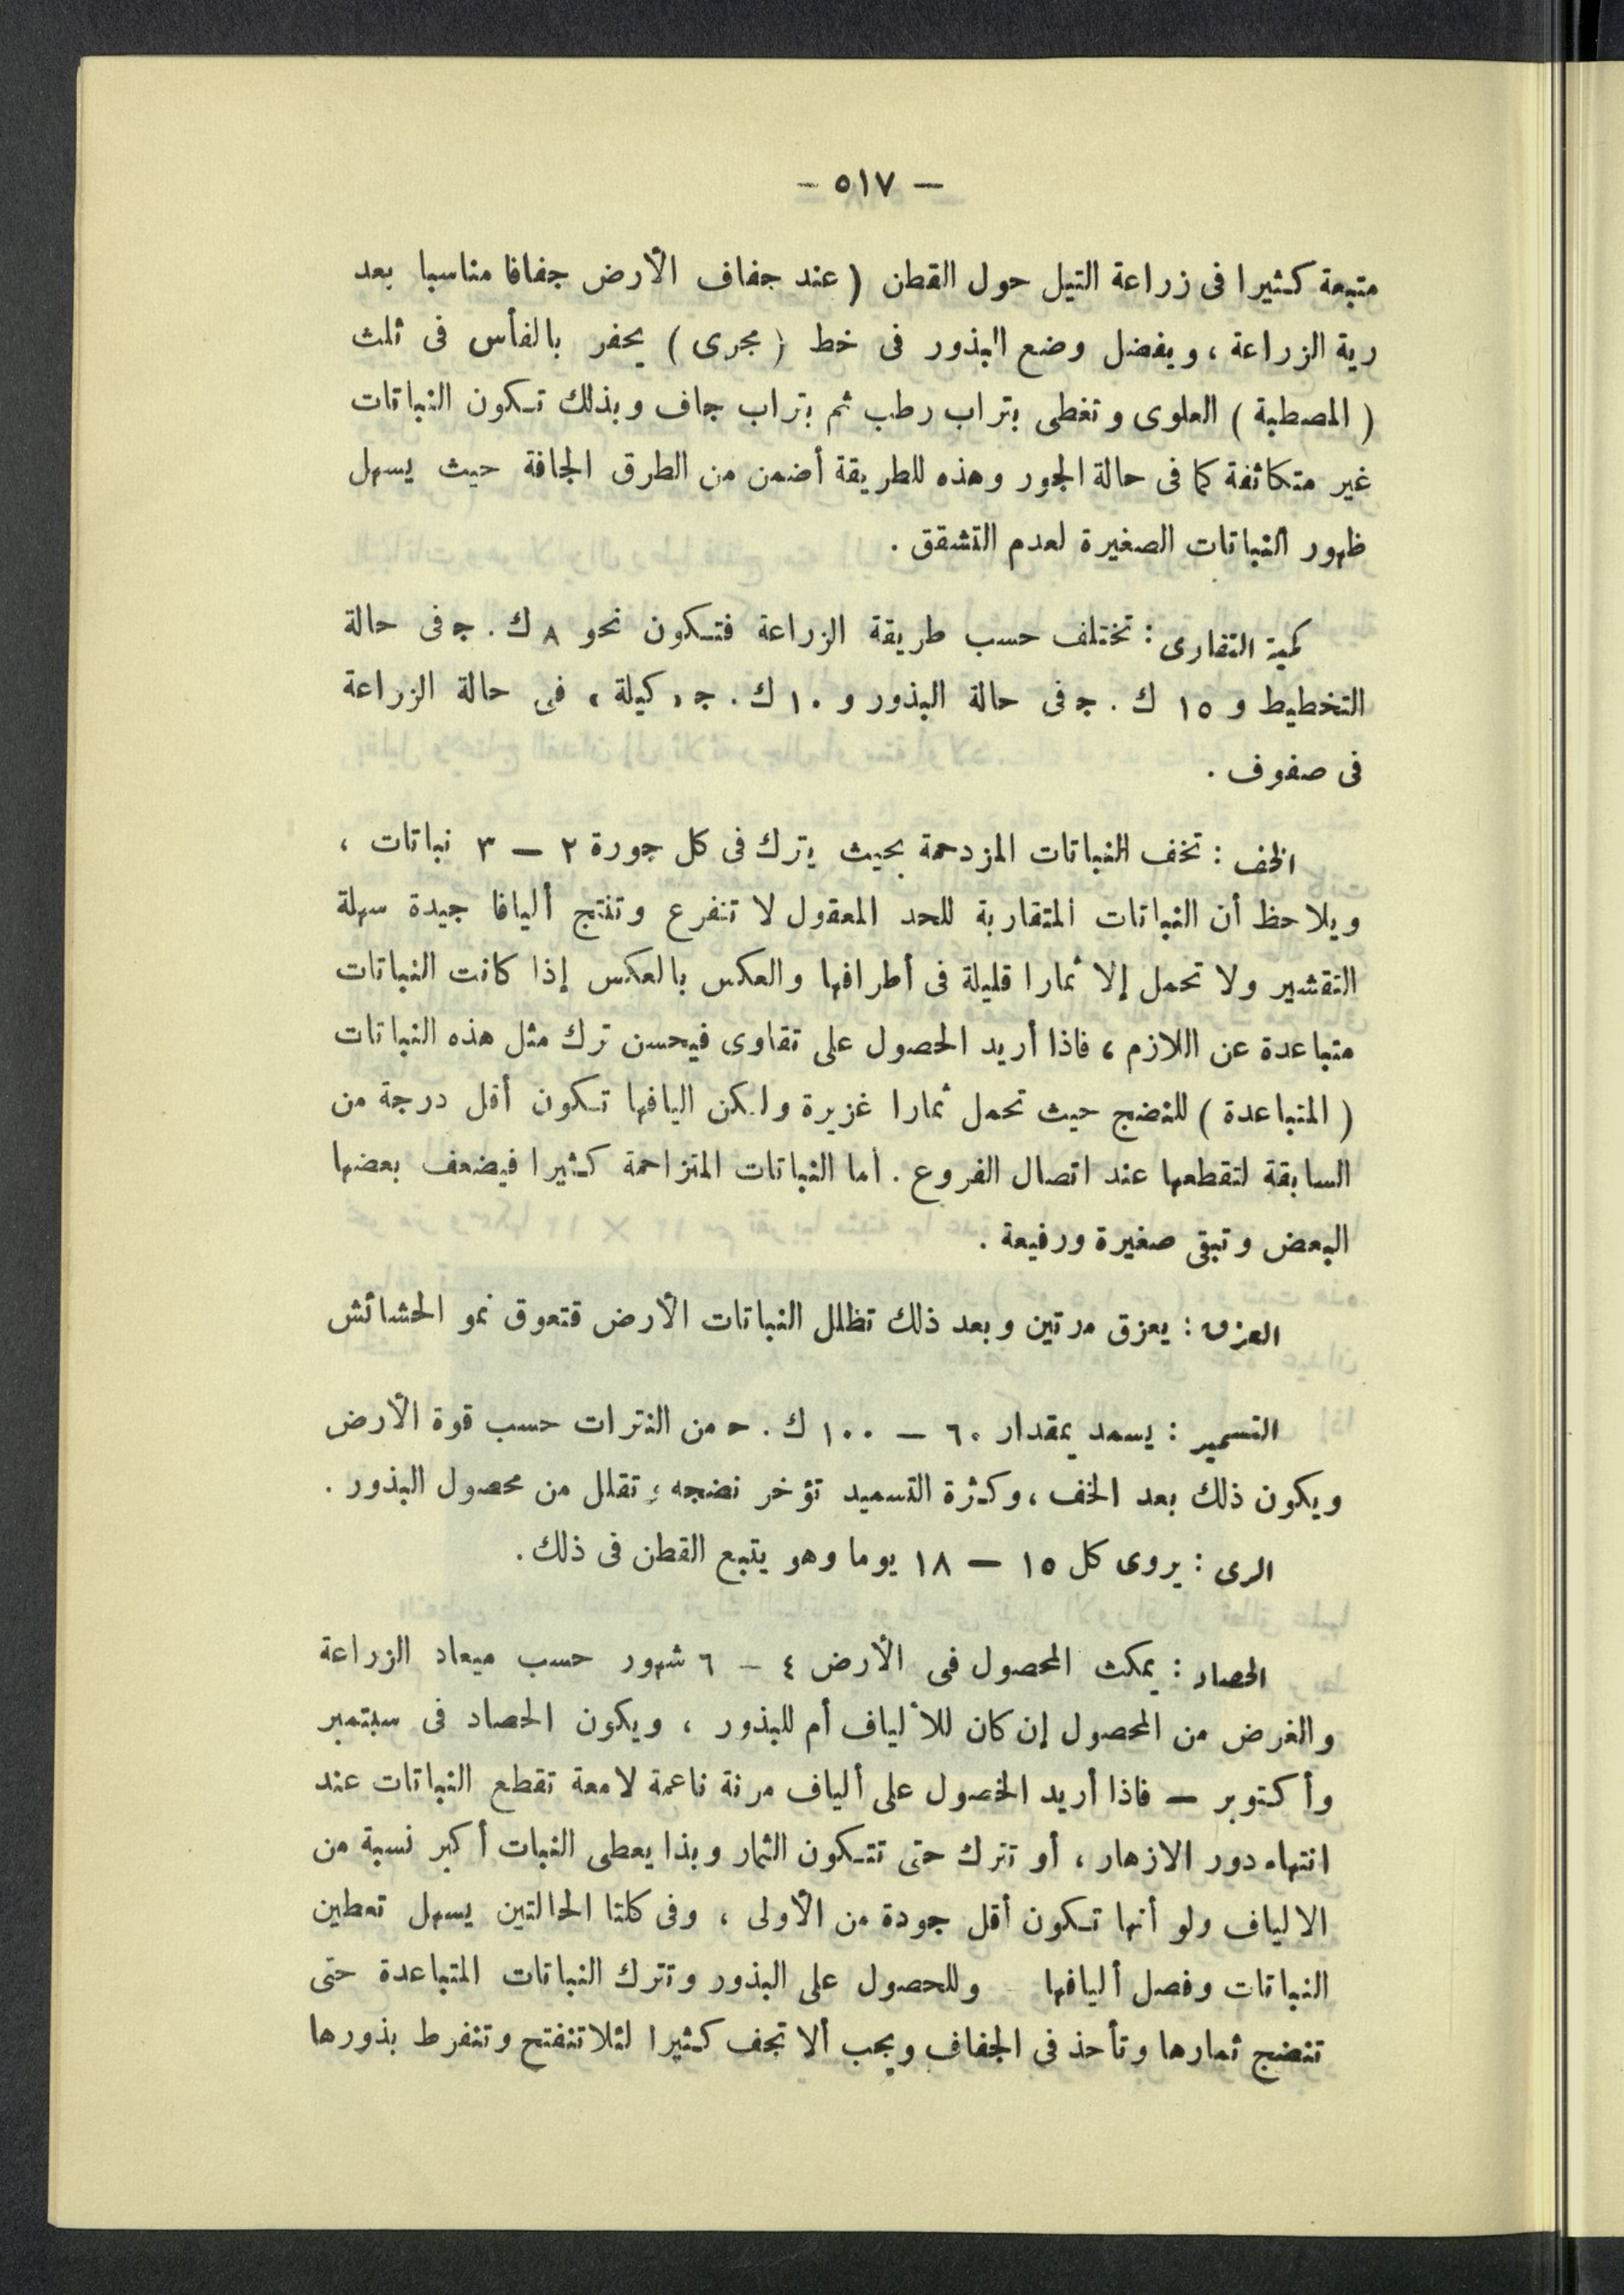 — ٥١٧ —
متبعة كثيرا فى زراعة التيل حول القطن ( عند جفاف الأرض جفافا مناسبا بعد
رية الزراعة ، ويفضل وضع البذور فى خط ( مجرى ) يحفر بالفأس فى ثلث
( المصطبة ) العلوى وتغطى بتراب رطب ثم بتراب جاف وبذلك تكون النباتات
غير متكاثفة كما فى حالة الجور وهذه للطريقة أضمن من الطرق الجافة حيث يسهل
ظهور النباتات الصغيرة لعدم التشقق .
كمية التقاوى : تختلف حسب طريقة الزراعة فتكون نحو ٨ ك . ج فى حالة
التخطيط و ١٥ ك . ج فى حالة البذور و ١٠ ك . ج « كيلة » فى حالة الزراعة
فى صفوف .
الخف : تخف النباتات المزدحمة بحيث يترك فى كل جورة ٢ — ٣ نباتات ،
ويلاحظ أن النباتات المتقاربة للحد المعقول لا تتفرع وتنتج أليافا جيدة سهلة
التقشير ولا تحمل إلا ثمارا قليلة فى أطرافها والعكس بالعكس إذا كانت النباتات
متباعدة عن اللازم ، فاذا أريد الحصول على تقاوى فيحسن ترك مثل هذه النباتات
( المتباعدة ) للنضج حيث تحمل ثمارا غزيرة ولكن اليافها تكون أقل درجة من
السابقة لتقطعها عند اتصال الفروع . أما النباتات المتزاحمة كثيرا فيضعف بعضها
البعض وتبقى صغيرة ورفيعة .
العزق : يعزق مرتين وبعد ذلك تظلل النباتات الأرض فتعوق نمو الحشائش
التسميد : يسمد بمقدار ٦٠ — ١٠٠ ك . ح من النترات حسب قوة الأرض
ويكون ذلك بعد الخف ، وكثرة التسميد تؤخر نضجه وتقلل من محصول البذور .
الرى : يروى كل ١٥ — ١٨ يوما وهو يتبع القطن فى ذلك .
الحصاد : يمكث المحصول فى الأرض ٤ — ٦ شهور حسب ميعاد الزراعة
والغرض من المحصول إن كان للألياف أم للبذور ، ويكون الحصاد فى سبتمبر
وأكتوبر — فاذا أريد الحصول على ألياف مرنة ناعمة لامعة تقطع النباتات عند
انتهاء دور الازهار ، أو تترك حتى تتكون الثمار وبذا يعطى النبات أكبر نسبة من
الالياف ولو أنها تكون أقل جودة من الأولى ، وفى كلتا الحالتين يسهل تعطين
النباتات وفصل أليافها وللحصول على البذور وتترك النباتات المتباعدة حتى
تنضج ثمارها وتأخذ فى الجفاف ويجب ألا تجف كثيرا لئلا تنفتح وتنفرط بذورها